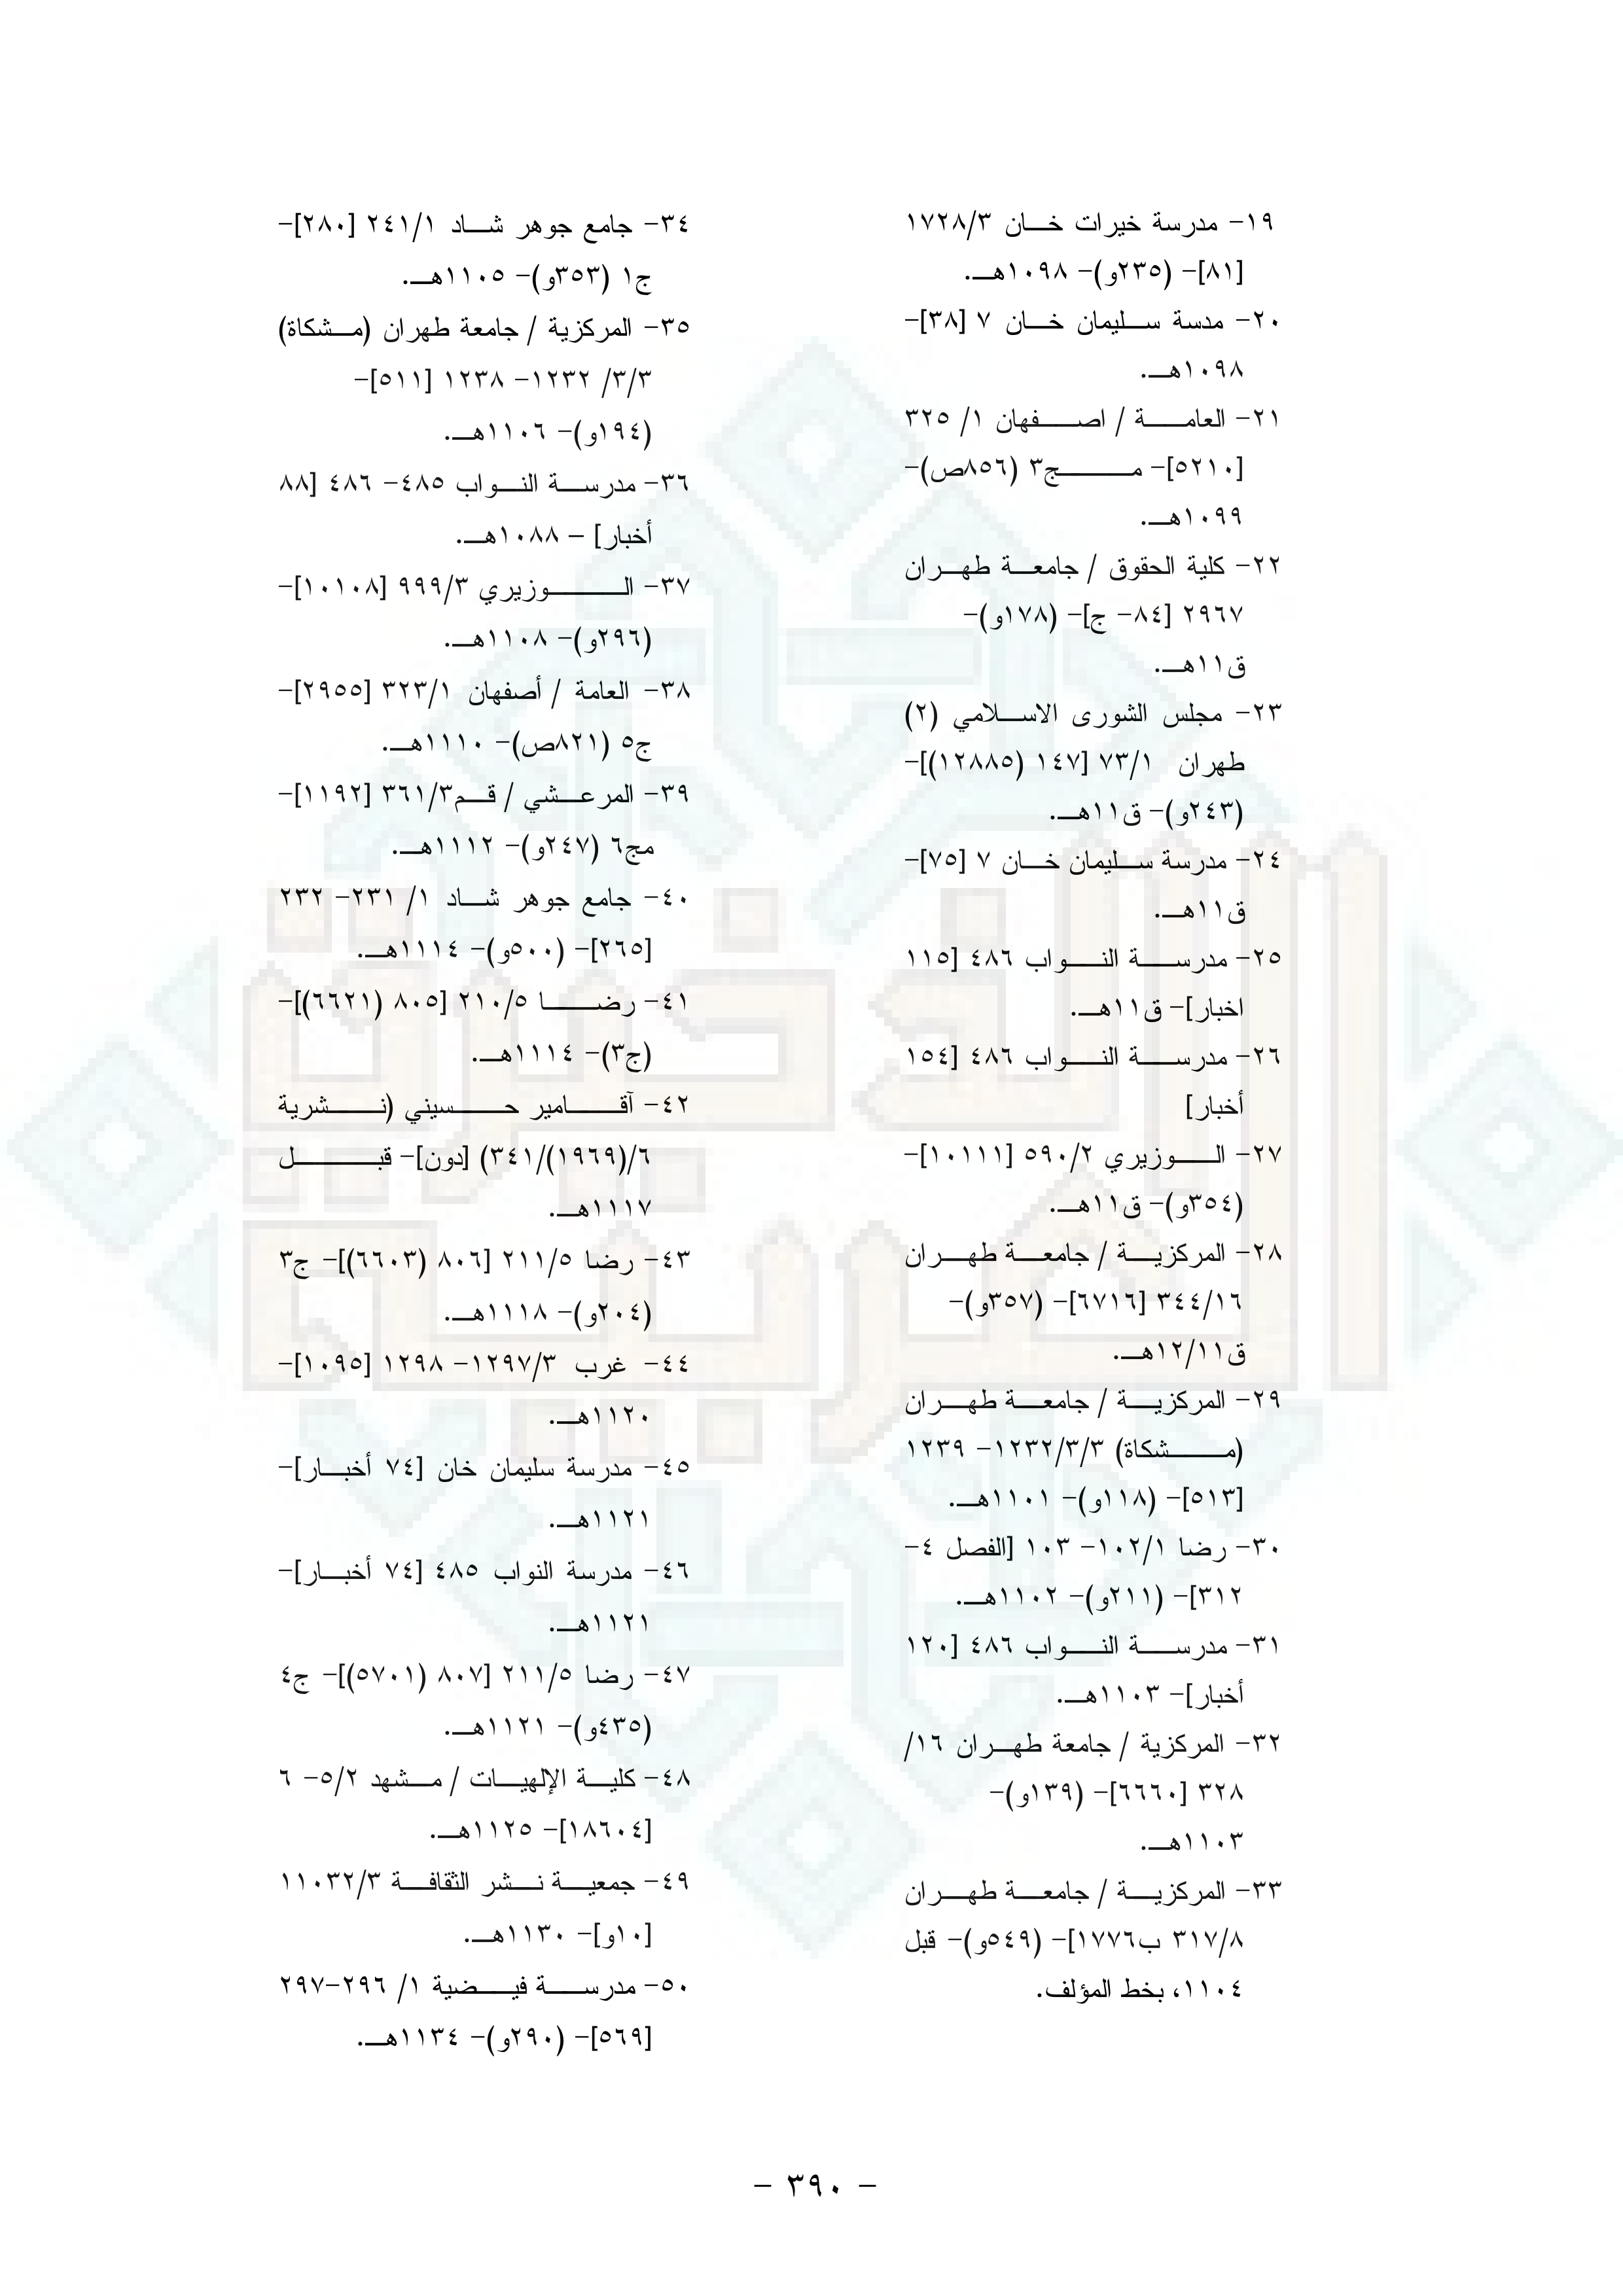 ١٩- مدرسة خيرات خان ١٧٢٨/٣
[٨١]- (٢٣٥و)- ١٠٩٨هـ.
٢٠- مدسة سليمان خان ٧ [٣٨]-
١٠٩٨هـ.
٢١- العامة / اصفهان ١/ ٣٢٥
[٥٢١٠]- مج٣ (٨٥٦ص)-
١٠٩٩هـ.
٢٢- كلية الحقوق / جامعة طهران
٢٩٦٧ [٨٤- ج]- (١٧٨و)-
ق١١هـ.
٢٣- مجلس الشورى الاسلامي (٢)
طهران ٧٣/١ [١٤٧ (١٢٨٨٥)]-
(٢٤٣و)- ق١١هـ.
٢٤- مدرسة سليمان خان ٧ [٧٥]-
ق١١هـ.
٢٥- مدرسة النواب ٤٨٦ [١١٥
اخبار]- ق١١هـ.
٢٦- مدرسة النواب ٤٨٦ [١٥٤
أخبار]
٢٧- الوزيري ٥٩٠/٢ [١٠١١١]-
(٣٥٤و)- ق١١هـ.
٢٨- المركزية / جامعة طهران
٣٤٤/١٦ [٦٧١٦]- (٣٥٧و)-
ق١٢/١١هـ.
٢٩- المركزية / جامعة طهران
(مشكاة) ١٢٣٢/٣/٣- ١٢٣٩
[٥١٣]- (١١٨و)- ١١٠١هـ.
٣٠- رضا ١٠٢/١- ١٠٣ [الفصل ٤-
٣١٢]- (٢١١و)- ١١٠٢هـ.
٣١- مدرسة النواب ٤٨٦ [١٢٠
أخبار]- ١١٠٣هـ.
٣٢- المركزية / جامعة طهران ١٦/
٣٢٨ [٦٦٦٠]- (١٣٩و)-
١١٠٣هـ.
٣٣- المركزية / جامعة طهران
٣١٧/٨ ب١٧٧٦]- (٥٤٩و)- قبل
١١٠٤، بخط المؤلف.
٣٤- جامع جوهر شاد ٢٤١/١ [٢٨٠]-
ج١ (٣٥٣و)- ١١٠٥هـ.
٣٥- المركزية / جامعة طهران (مشكاة)
٣/٣/ ١٢٣٢- ١٢٣٨ [٥١١]-
(١٩٤و)- ١١٠٦هـ.
٣٦- مدرسة النواب ٤٨٥- ٤٨٦ [٨٨
أخبار] – ١٠٨٨هـ.
٣٧- الوزيري ٩٩٩/٣ [١٠١٠٨]-
(٢٩٦و)- ١١٠٨هـ.
٣٨- العامة / أصفهان ٣٢٣/١ [٢٩٥٥]-
ج٥ (٨٢١ص)- ١١١٠هـ.
٣٩- المرعشي / قم٣٦١/٣ [١١٩٢]-
مج٦ (٢٤٧و)- ١١١٢هـ.
٤٠- جامع جوهر شاد ١/ ٢٣١- ٢٣٢
[٢٦٥]- (٥٠٠و)- ١١١٤هـ.
٤١- رضا ٢١٠/٥ [٨٠٥ (٦٦٢١)]-
(ج٣)- ١١١٤هـ.
٤٢- آقامير حسيني (نشرية
٦/(١٩٦٩)/٣٤١) [دون]- قبل
١١١٧هـ.
٤٣- رضا ٢١١/٥ [٨٠٦ (٦٦٠٣)]- ج٣
(٢٠٤و)- ١١١٨هـ.
٤٤- غرب ١٢٩٧/٣- ١٢٩٨ [١٠٩٥]-
١١٢٠هـ.
٤٥- مدرسة سليمان خان [٧٤ أخبار]-
١١٢١هـ.
٤٦- مدرسة النواب ٤٨٥ [٧٤ أخبار]-
١١٢١هـ.
٤٧- رضا ٢١١/٥ [٨٠٧ (٥٧٠١)]- ج٤
(٤٣٥و)- ١١٢١هـ.
٤٨- كلية الإلهيات / مشهد ٥/٢- ٦
[١٨٦٠٤]- ١١٢٥هـ.
٤٩- جمعية نشر الثقافة ١١٠٣٢/٣
[١٠و]- ١١٣٠هـ.
٥٠- مدرسة فيضية ١/ ٢٩٦-٢٩٧
[٥٦٩]- (٢٩٠و)- ١١٣٤هـ.
- ٣٩٠ -